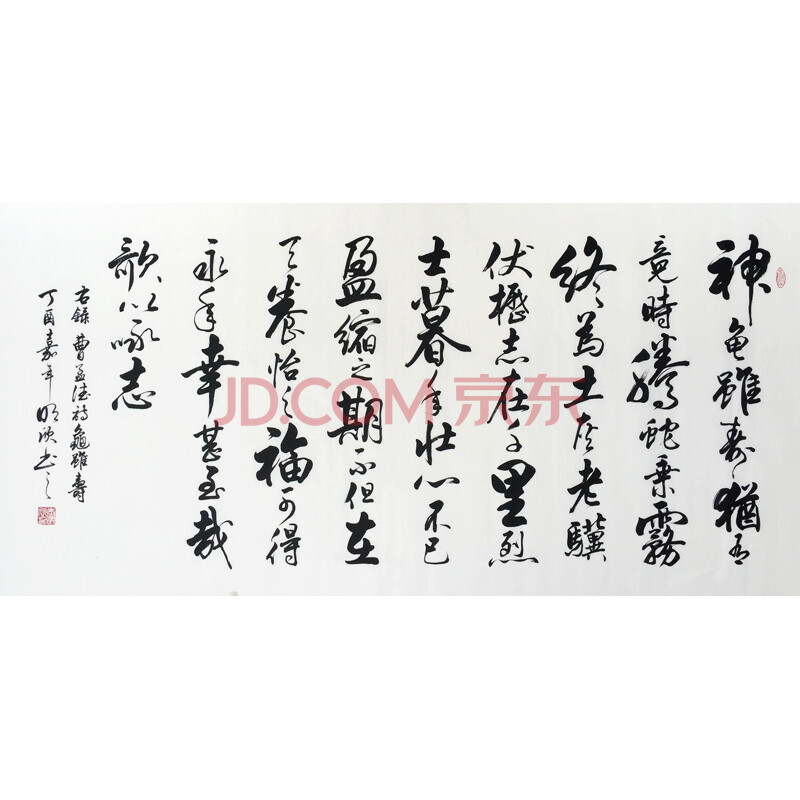 神龟雖寿猶有
竟時騰蛇乗霧
終為土灰老驥
伏櫪志在千里烈
士暮年壮心不已
盈縮之期不但在
天養怡之福可得
永年幸甚至哉
歌以咏志
右録曹孟德詩龜雖壽
丁酉嘉平明书之
JD.COM 京东